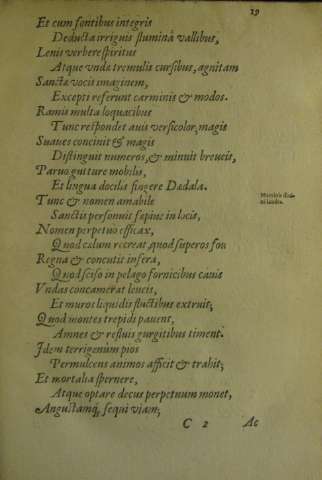 19
Et cum fontibus integris
Deducta irriguis flumina vallibus,
Lenis verbere spiritus
Atque vndæ tremulis cursibus, agnitam
Sanctæ vocis imaginem,
Excepti referunt carminis & modos.
Ramis multa loquacibus
Tunc respondet auis versicolor, magis
Suaues concinit & magis
Distinguit numeros, & minuit breueis,
Paruo guiture mobilis,
Et lingua docilis fingere Dædala.
Tunc & nomen amabile
Sanctis personuit sæpius in locis,
Nomen perpetuo efficax,
Quod cælum recreat, quod superos fou
Regna & concutit infera,
Quod scißo in pelago fornicibus cauis
Vndas concamerat leueis,
Et muros liquidis fluctibus extruit;
Quod montes trepidi pauent,
Amnes & refluis gurgitibus timent.
Idem terrigenûm pios
Permulcens animos afficit & trahit;
Et mortalia spernere,
Atque optare decus perpetuum monet,
Angustamq; sequi viam;
C 2 Ac